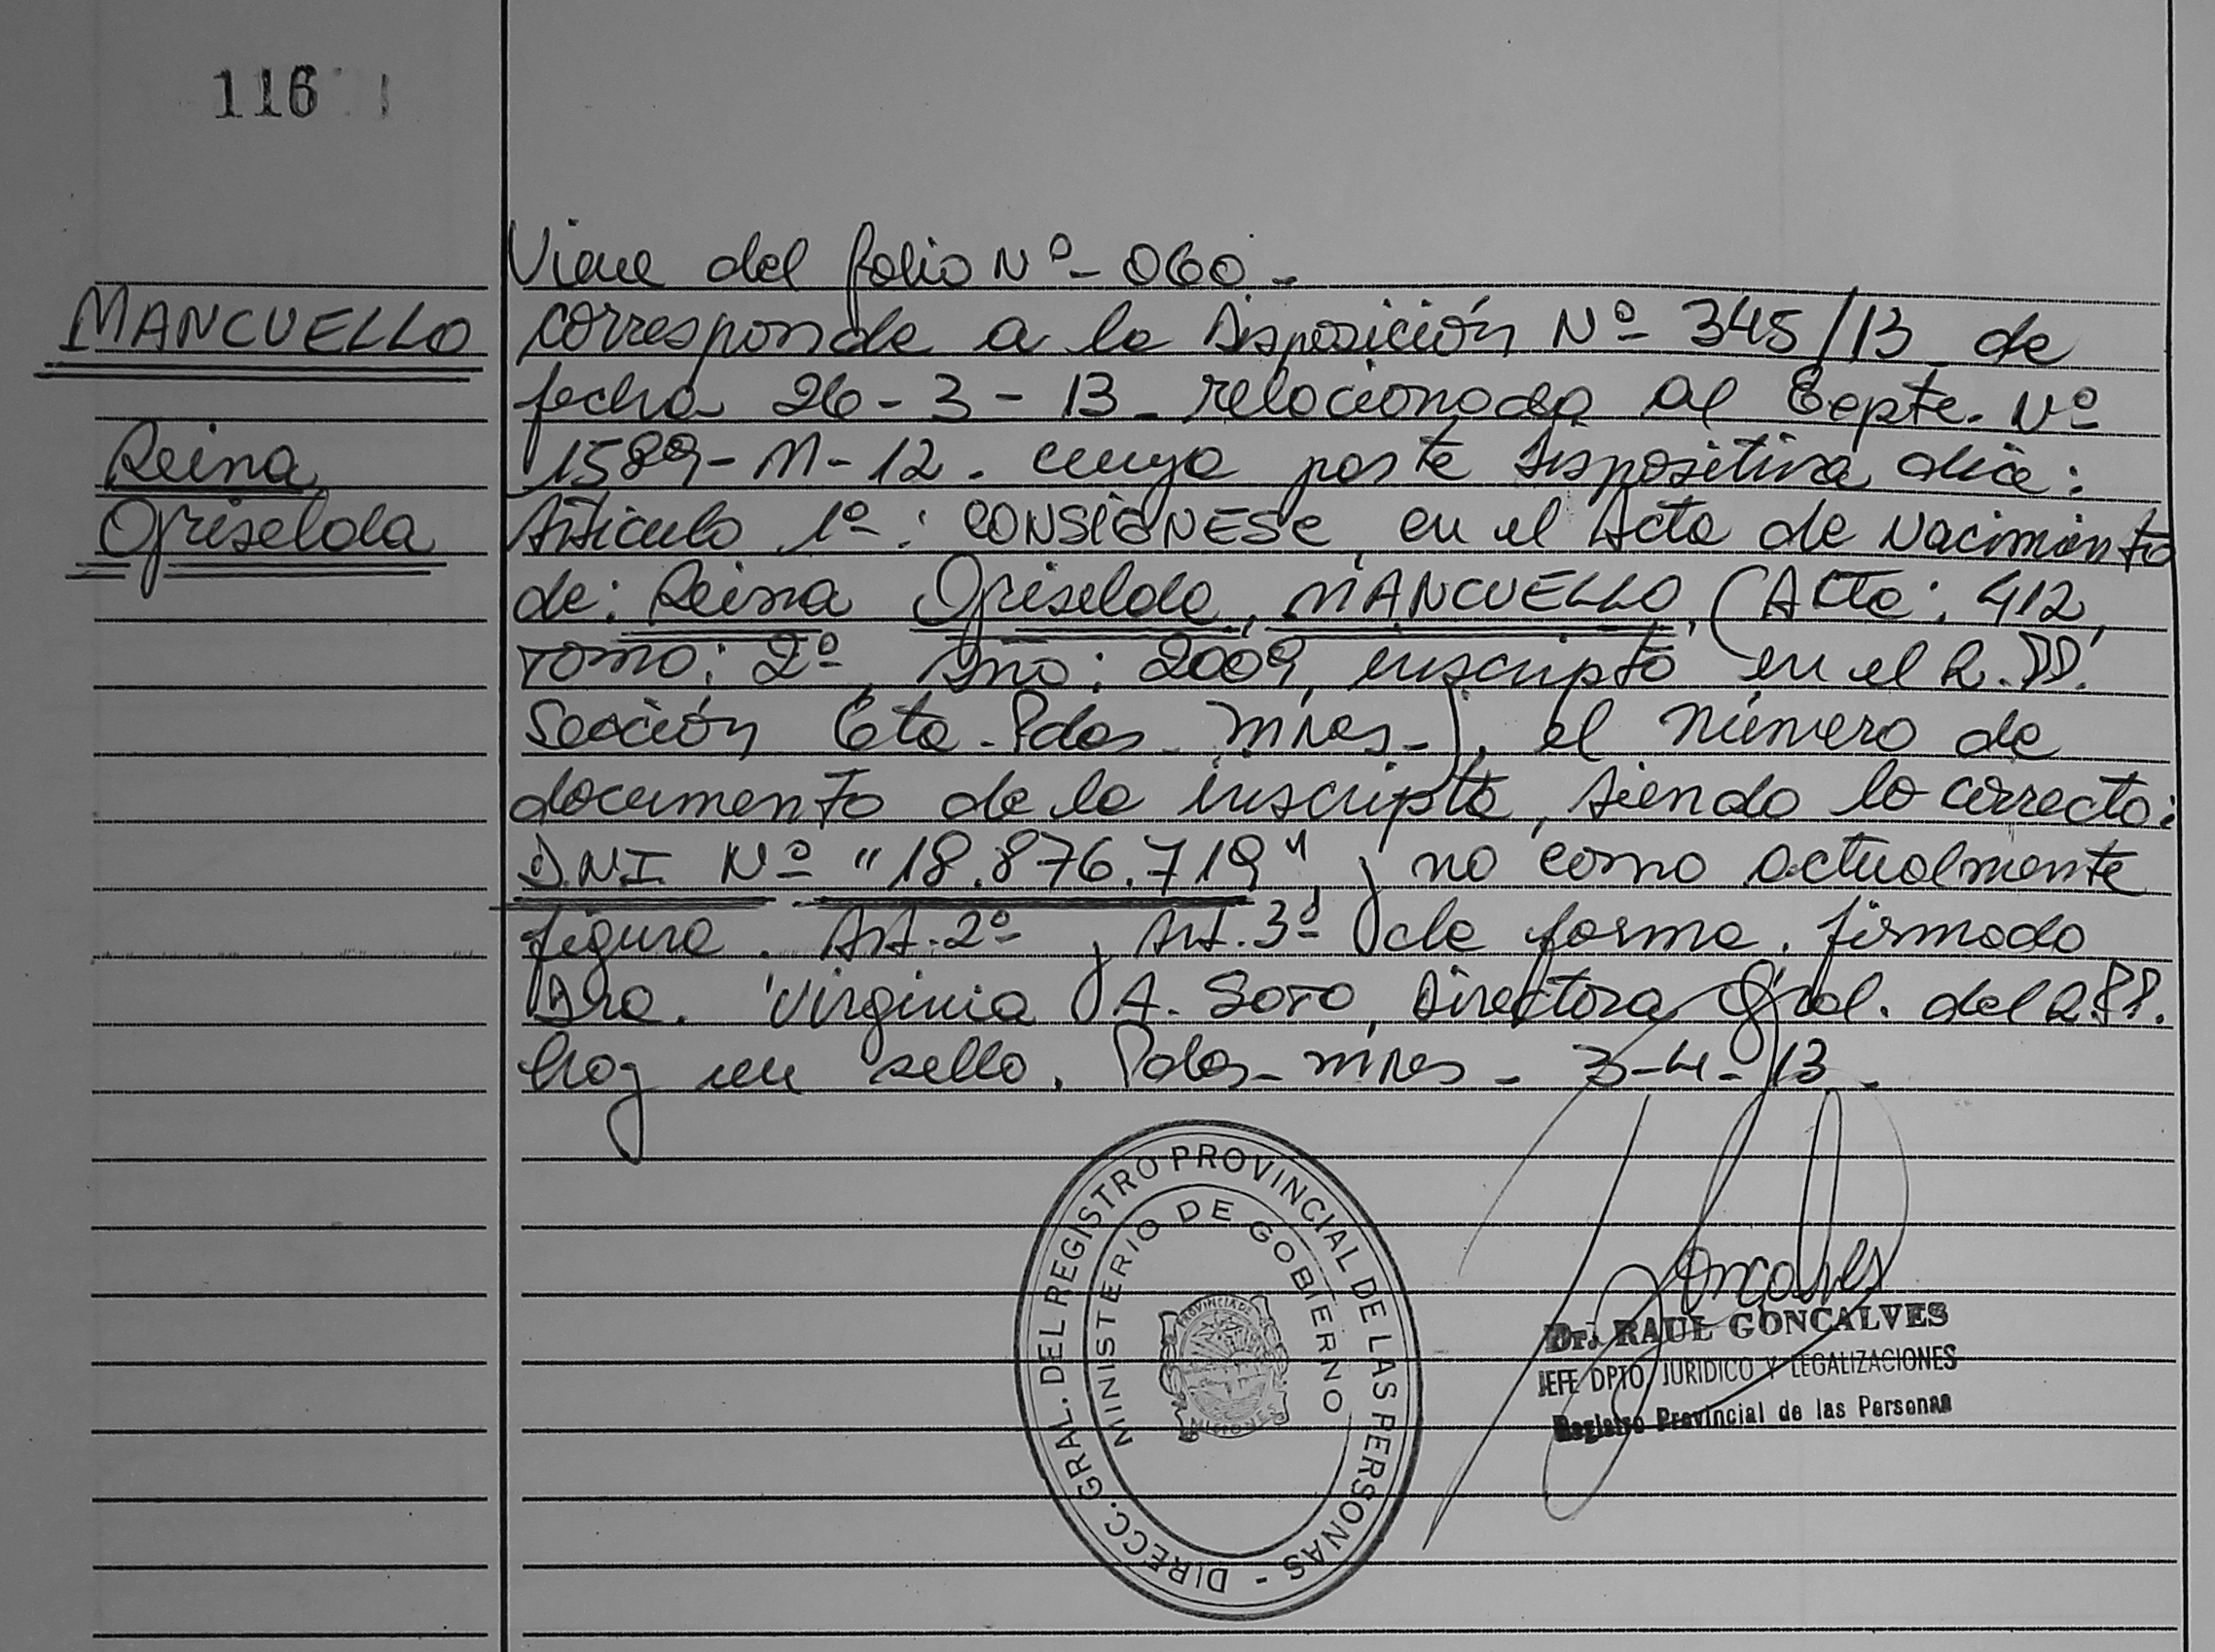 116
MANCUELLO
Reina
Griselda
Viene del folio Nº- 060.-
Corresponde a la Disposición Nº 345/13 de
fecha 26-3-13- relacionada al Expte. Nº
1589-M-12. cuya parte dispositiva dice:
Artículo 1º: CONSIGNESE, en el Acta de Nacimiento
de: Reina Griselda, MANCUELLO, (Acta: 412,
Tomo: 2º, Año: 2009, inscripta en el R.PP.
Sección 6ta- Pdas- mnes-). el número de
documento de la inscripta, siendo lo correcto:
D.N.I. Nº "18.876.719" y no como actualmente
figura. Art.2º y Art.3º de forma. firmado
Dra. Virginia A. SOTO, Directora Gral. del R.PP.
hay un sello. Pdas- mnes- 3-4-13.
DIRECC. GRAL. DEL REGISTRO PROVINCIAL DE LAS PERSONAS -
MINISTERIO DE GOBIERNO
PROVINCIA DE
MISIONES
Goncalves
Dr. RAUL GONCALVES
JEFE DPTO JURIDICO Y LEGALIZACIONES
Registro Provincial de las Personas